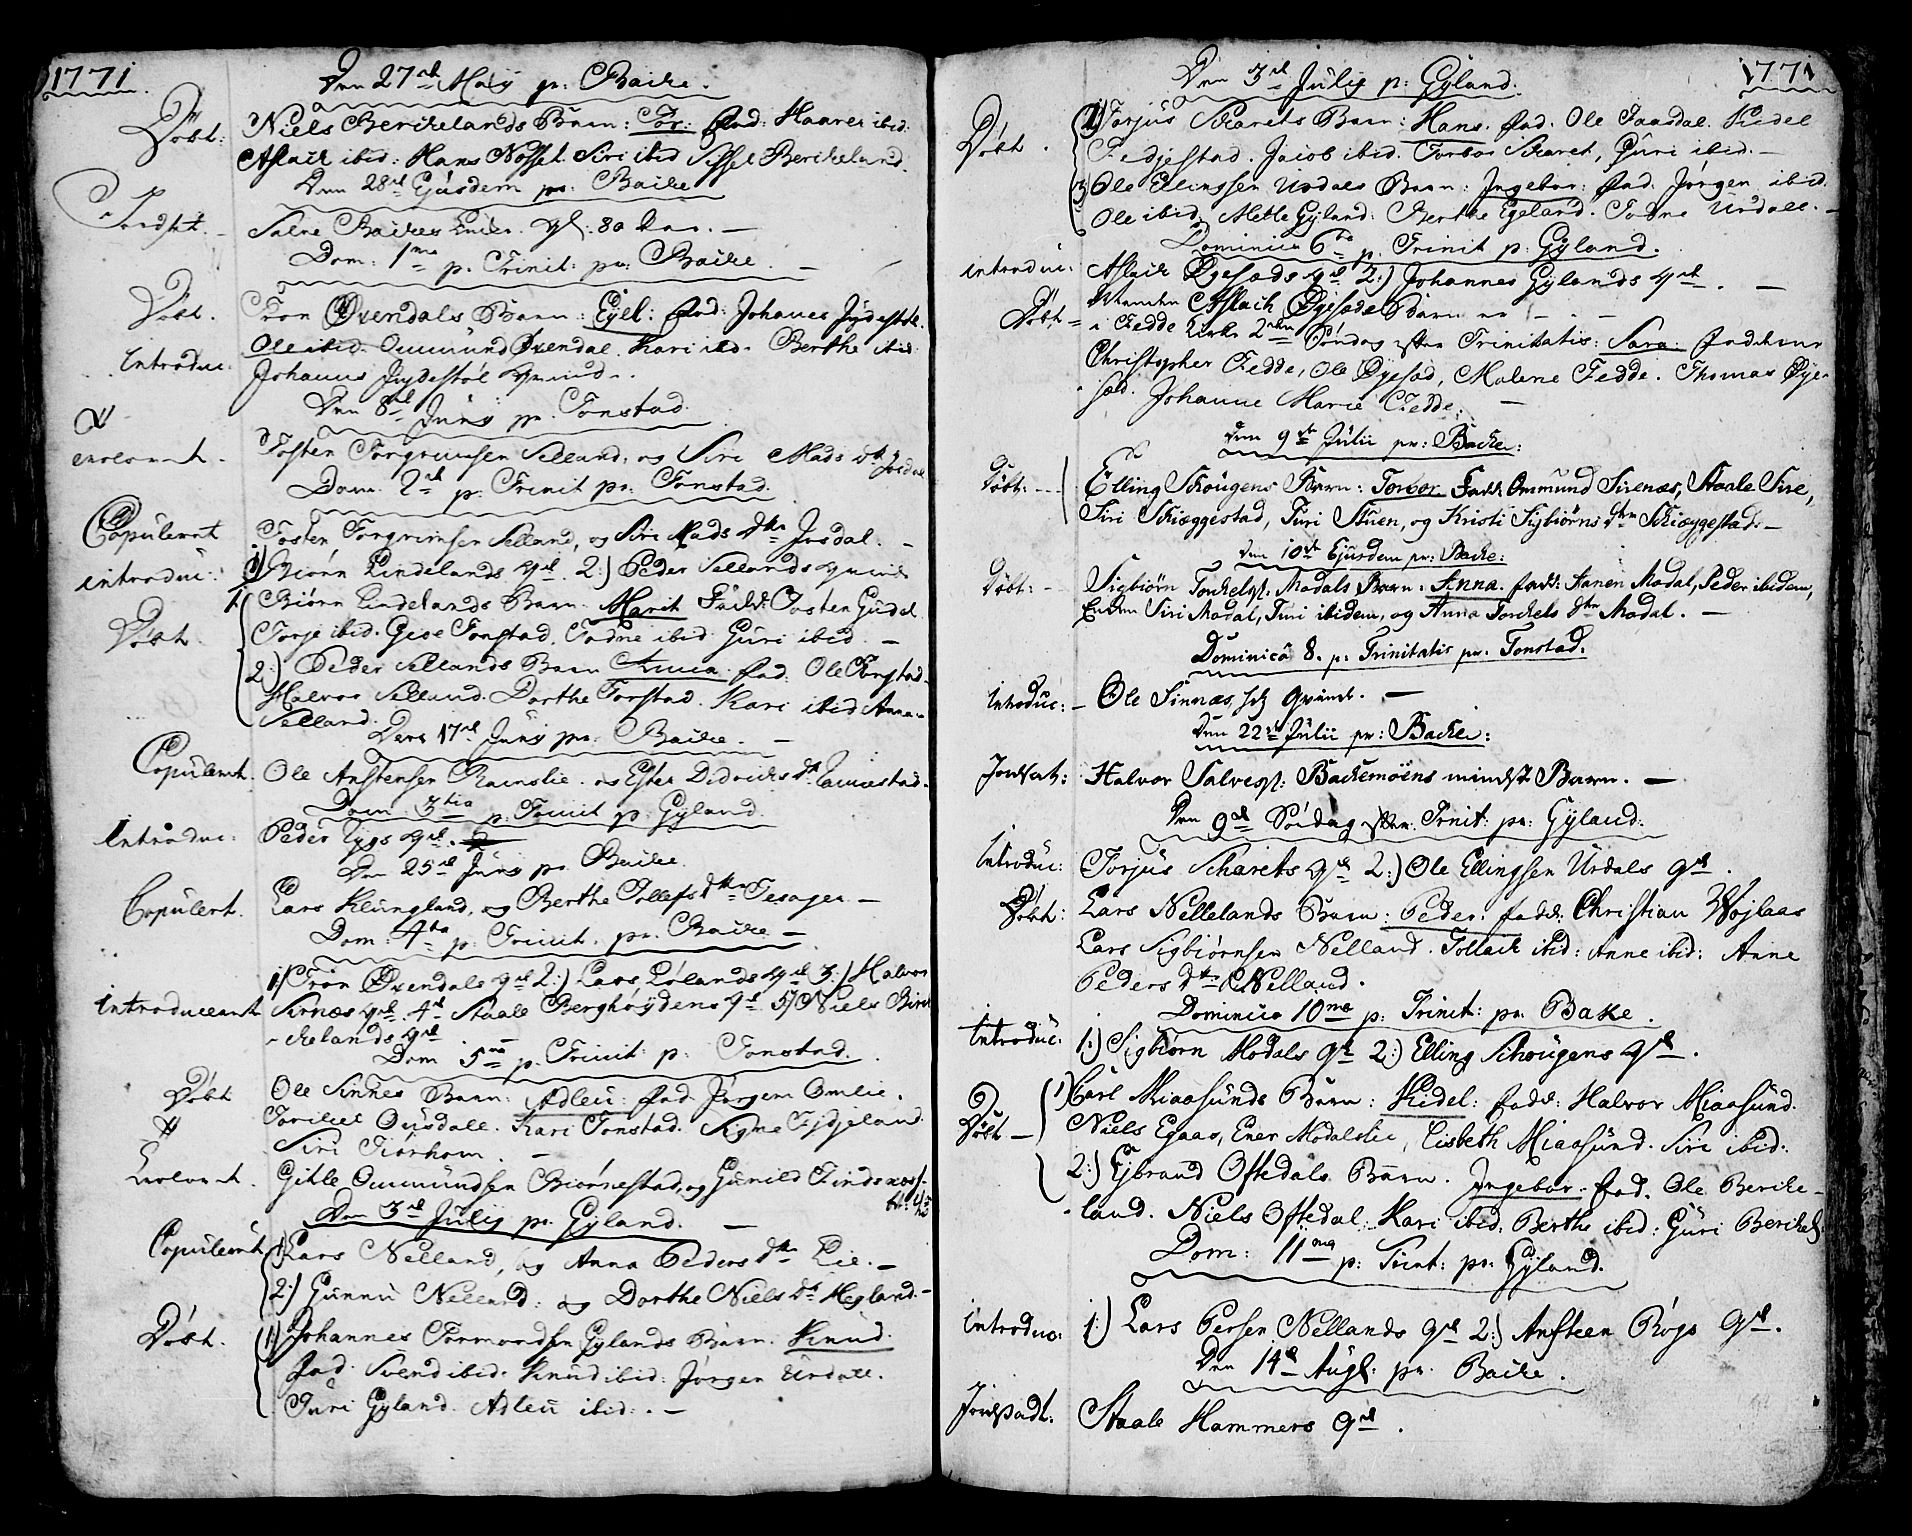 1771.
Den 27de Maij pr: Backe.
Döbt: Niels Berckelands Barn: Tor: Fad: Haaver ibid:
Aslack ibid: Hans Nossel. Siri ibid Sissel Berckeland.
Den 28de Ejusdem pr: Backe
Jordfæst. Salve Backes Enke. gl: 80 Aar. —
Dom: 1ma p. Trinit: pr: Backe. —
Döbt. Tron Øvendals Barn: Eyel: Fad: Johanes Jydestöl.
Ole ibid. Ommund Øvendal. Kari ibd. Berthe ibid
Introduc: Johanes Jrydestöl qvinde.
Den 8de Junij pr. Tonstad.
Trolovet. Tosten Torgrimsen Selland, og Siri Mads dtr Josdal
Dom. 2da p. Trinit pr. Tonstad.
Copuleret Tosten Torgrimsen Selland, og Siri Mads dtr Josdal. —
introduc: 1) Biörn Lindelands qvd. 2:) Peder Sellands qvinde
Döbt. 1. Biörn Lindelands Barn. Marit Fadd: Tosten Gudal.
Torje ibid. Giøe Tonstad. Todne ibid Guri ibid —
2:) Peder Sellands Barn Anna. Fad: Ole Tonstad.
Halvor Selland. Dorthe Tonstad. Kari ibid Anna
Selland.
Den 17de Junij pr: Backe. —
Copuleret. Ole Anstensen Ramslie. og Ester Didrichs dtr
Dom 3tia p. Trinit p. Gyland.
Introduc: Peder Lygs qvd.
Den 25de Junij pr Backe.
Copulert. Lars Klungland, og Berthe Tollefs dtr Tesager —
Dom: 4ta p: Trinit. pr. Backe —
introduceret 1) Tron Øvendals qvd 2:) Lars Lølands qvd 3:) Halvor
Sirnæs qvd. 4de Staale Berghöydens qd 5) Niels Birk
-kelands qvd
Dom 5ta p. Trinit: p: Tonstad.
Döbt Ole Sinnes Barn: Adleu: Fad: Jörgen Omlie.
Torkel Ousdall. Kari Tonstad. Signe Fidjeland.
Siri Tiörhom. —
Trolovet. Gitle Ommundsen Biörnestad, og Gunild Tindsnæs
Den 3de Julij pr. Gyland. —
Copuleret 1) Lars Nelland, og Anna Peders dtr Lie. —
2:) Gunnu Nelland: og Dorthe Niels dtr Hegland. —
Döbt. 1) Johannes Tormordsen Gylands Barn. Knud.
Fad. Svend ibid. Knud ibid: Jörgen Urdall.
Turi Gyland. Adleu ibid: —
1771
Den 3de Julij p: Gyland.
Döbt. 2) Torjus Skarets Barn: Hans. Fad: Ole Faasdal. Kidel
Fedjestad. Jacob ibid. Torbor Skaret, Guri ibid. —
3) Ole Ellingsen Urdals Barn: Ingebor: Fad: Jörgen ibid.
Ole ibid. Mette Gyland: Berthe Egeland. Todne Urdall. —
Dominica 6ta p. Trinit p: Gyland.
introduc: Aslack Øyesads qd 2:) Johannes Gylands qvd. —
Döbt — Aslach Øyesads Barn er
i Fedde Kirke 2den Söndag efter Trinitatis: Sara: Fadderne
Christopher Fedde, Ole Øyesad, Malene Fedde. Thomas Øye-
sad. Johanne Marie Fedde: —
Den 9de Julii pr: Backe:
Döbt: — Elling Skougens Barn: Torbor. Fadd: Ommund Sirenæs, Staale Sire,
Siri Skieggestad, Turi Stuen, og Kristi Sigbiörns dtr Skieggestad. —
Den 10de Ejusdem pr: Backe:
Döbt: — Sigbiörn Torkels: Modals Barn: Anna. Fadd: Aanen Modal, Peder ibidem,
Enken Siri Modal, Turi ibidem, og Anna Torkels dtr Modal. —
Dominica 8. p: Trinitatis pr: Tonstad.
introduc: — Ole Sinnæs, qvinde. —
Den 22de Julii pr: Backe:
Jordfæst: Halvor Salves: Backemöens mindste Barn. —
Den 9de Söndag efter Trinit: pr: Gyland.
introduc: Torjus Scharets qd 2:) Ole Ellingsen Urdals qvd.
Döbt: Lars Nellelands Barn: Peder. Fadd: Christian Wöjlaas
Lars Sigbiörnsen Nelland. Tollack ibid: Anne ibid: Anne
Peders dtr Nelland.
Dominica 10ma p: Trinit: pr: Bake.
introduc: 1:) Sigbiörn Modals qd 2:) Elling Schougens qvd.
Döbt — 1) Carl Miaasunds Barn: Kidel: Fadd: Halvor Miaasund.
Niels Egaas, Ener Modalslie, Lisbeth Miaasund. Siri ibid:
2:) Ejbrand Oftedals Barn. Ingebor. Fad. Ole Bericke-
land. Niels Oftedal. Kari ibid. Berthe ibid: Guri Berickel:
Dom: 11ma p: Trint: pr: Gyland.
introduc: 1:) Lars Persen Nellands qd 2:) Ansteen Rögs qd.
Den 14de Augs: pr. Backe.
Jordfæst: Staale Hammers qd.